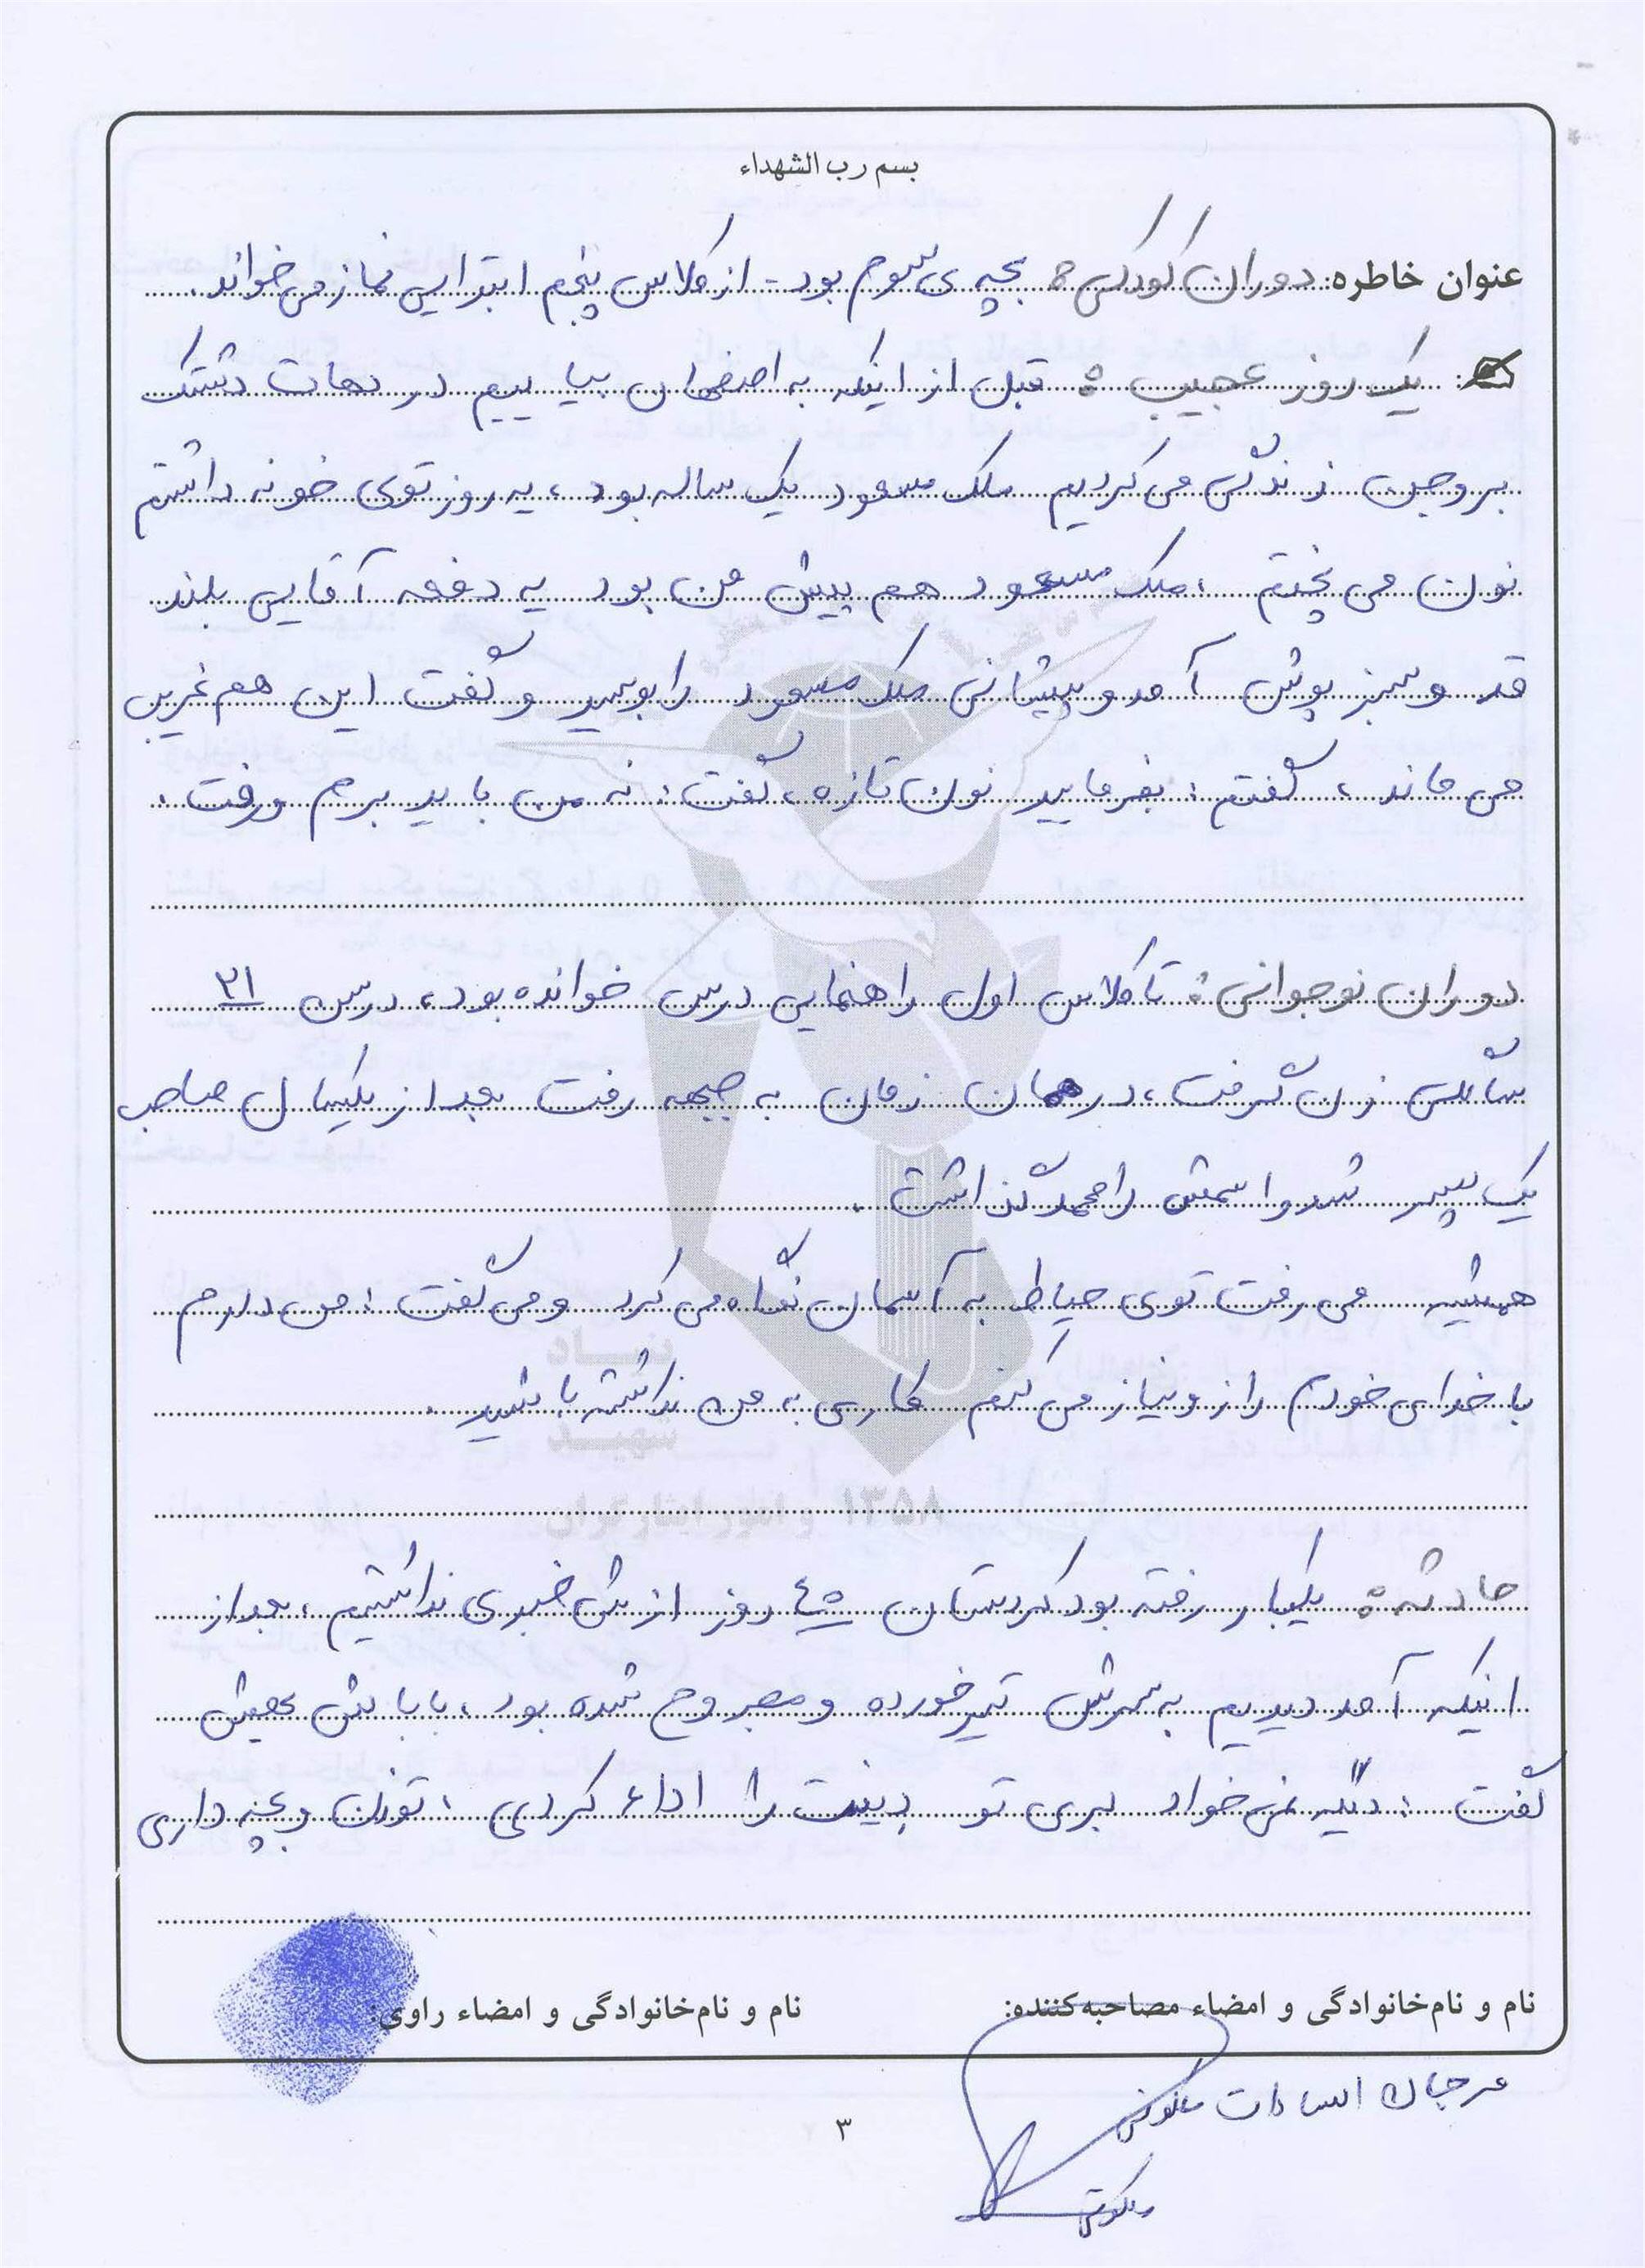 بسم رب الشهداء
عنوان خاطره: دوران کودکی: بچه ی سوم بود - از کلاس پنجم ابتدایی نماز می خواند.
یک روز عجیب: قبل از اینکه به اصفهان بیاییم در دهات دشتک
بروجن زندگی می کردیم ملک مسعود یک ساله بود، یه روز توی خونه داشتم
نون می پختم، ملک مسعود هم پیش من بود یه دفعه آقایی بلند
قد و سبز پوش آمد و پیشانی ملک مسعود را بوسید و گفت این هم غریب
می ماند، گفتم: بفرمایید نون تازه، گفت: نه من باید برم ورفت.
دوران نوجوانی: تا کلاس اول راهنمایی درس خوانده بود، درسن ۲۱
سالگی زن گرفت، در همان زمان به جبهه رفت بعد از یکسال صاحب
یک پسر شد و اسمش را محمد گذاشت.
همیشه می رفت توی حیاط به آسمان نگاه می کرد و می گفت: من دارم
با خدای خودم راز و نیاز می کنم کاری به من نداشته باشید.
حادثه: یکبار رفته بود کردستان ۴۵ روز ازش خبری نداشتیم، بعد از
اینکه آمد دیدیم به سرش تیر خورده و مجروح شده بود، باباش بهش
گفت: دیگه نمی خواد بری تو دینت را اداء کردی، تو زن و بچه داری
نام و نام‌خانوادگی و امضاء مصاحبه‌کننده:
نام و نام‌خانوادگی و امضاء راوی:
مرجان السادات ملکوتی
ملکوتی
۳
نماد
شهید
و امور ایثارگران
۱۳۵۸